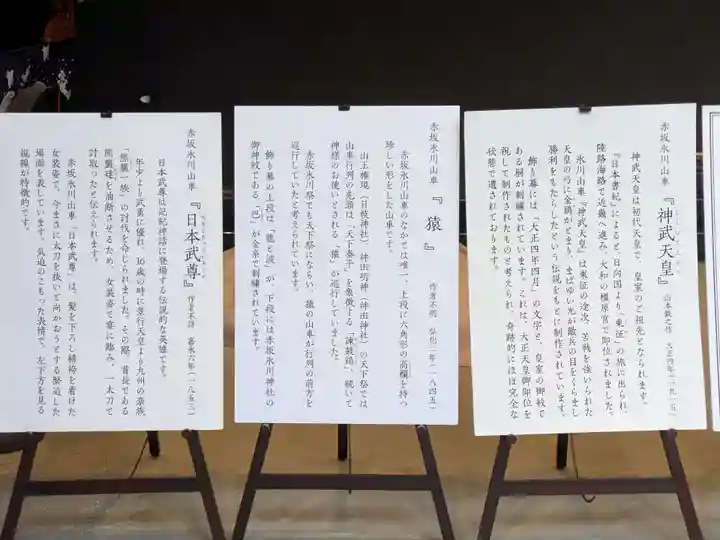 赤坂氷川山車
『神武天皇』
山本鉄之作 大正四年(一九一五)
神武天皇は初代天皇で、皇室のご祖先となられます。
『日本書紀』によると、日向国より「東征」の旅に出られ、
陸路海路で近畿へ進み、大和の橿原宮で即位されました。
氷川山車『神武天皇』は東征の途次、苦戦を強いられた
天皇の弓に金鵄がとまり、まばゆい光が敵兵の目をくらまし
勝利をもたらしたという伝説をもとに制作されています。
飾り幕には「大正四年四月」の文字と、皇室の御紋で
ある桐が刺繍されています。これは、大正天皇御即位を
祝して制作されたものと考えられ、奇跡的にほぼ完全な
状態で遺されております。
赤坂氷川山車
『猿』
作者不明 弘化二年(一八四五)
赤坂氷川山車のなかでは唯一、上段に六角形の高欄を持つ
珍しい形をした山車です。
山王権現(日枝神社)、神田明神(神田神社)の天下祭では
山車行列の先頭は「天下泰平」を象徴する「諫鼓鶏」、続いて
神様のお使いとされる「猿」が巡行していました。
赤坂氷川祭でも天下祭にならい、猿の山車が行列の前方を
巡行していたと考えられています。
飾り幕の上段には「龍と波」が、下段には赤坂氷川神社の
御神紋である「巴」が金糸で刺繍されています。
赤坂氷川山車
『日本武尊』
作者不詳 嘉永六年(一八五三)
日本武尊は記紀神話に登場する伝説的な英雄です。
年少より武勇に優れ、16歳の時に景行天皇より九州の豪族
「熊襲一族」の討伐を命じられました。その際、首長である
熊襲建を油断させるため、女装姿で宴に臨み、一太刀で
討取ったと伝えられます。
赤坂氷川山車「日本武尊」は、髪を下ろし補裆を着けた
女装姿で、今まさに太刀を抜いて向かおうとする緊迫した
場面を表しています。気迫のこもった表情で、左下方を見る
視線が特徴的です。